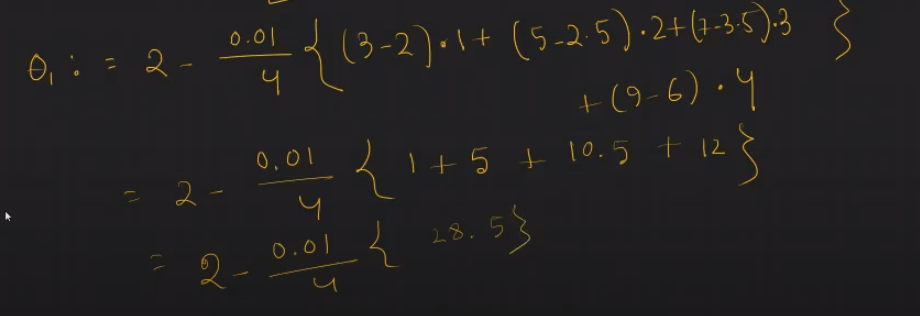 θ₁ := 2 - 0.01/4 { (3-2)·1 + (5-2.5)·2 + (7-3.5)·3 }
+ (9-6)·4
= 2 - 0.01/4 { 1 + 5 + 10.5 + 12 }
= 2 - 0.01/4 { 28.5 }